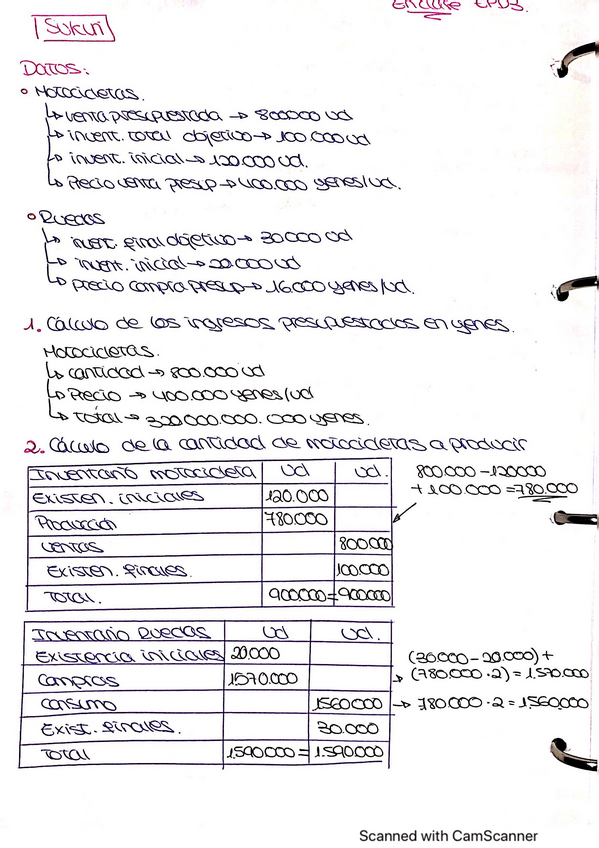 Enclase EPD3.
Sukui
Datos:
Motocicletas.
venta presupuestada → 800000 ud
invent. total objetivo → 100.000 ud
invent. inicial → 120.000 ud.
Precio venta presup → 400.000 yenes/ud.
Ruedas
invent. final objetivo → 30000 ud
invent. inicial → 20000 ud
precio compra presup → 16.000 yenes/ud.
1. Cálculo de los ingresos presupuestados en yenes.
Motocicletas.
cantidad → 800.000 ud
Precio → 400.000 yenes/ud
Total → 320.000.000.000 yenes.
2. Cálculo de la cantidad de motocicletas a producir
Inventario motocicleta ud ud.
Existen. iniciales 120.000
Producción 780.000
ventas 800.000
Existen. finales. 100.000
Total. 900.000 = 900.000
800.000 - 120000
+ 100.000 = 780.000
Inventario Ruedas ud ud.
Existencia iniciales 20.000
Compras 1.570.000
consumo 1560000
Exist. finales. 30.000
Total 1.590.000 = 1.590.000
(30.000 - 20.000) +
→ (780.000 · 2) = 1.570.000
→ 780.000 · 2 = 1.560.000
Scanned with CamScanner